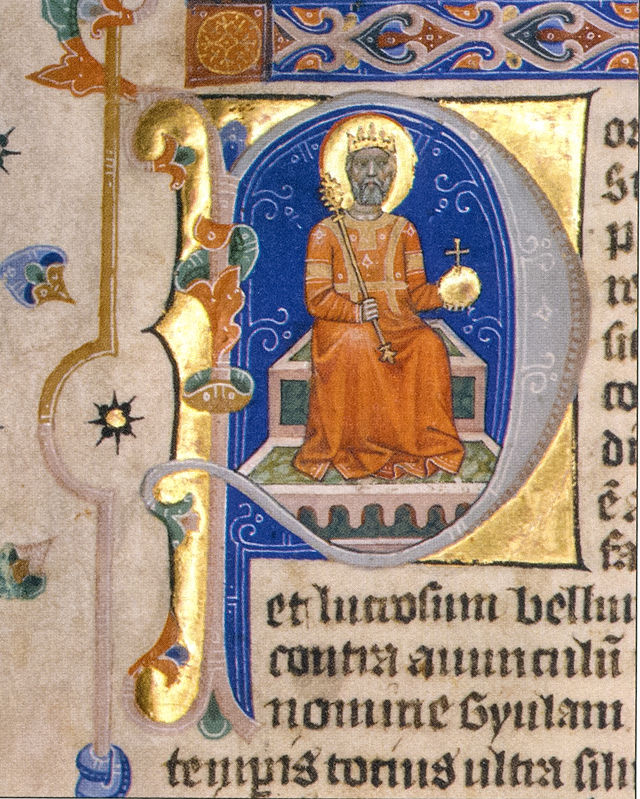 P
or
et lucrosum bellu
contra auunculū
nomine Gyulam
temp̲is totius ultra silu